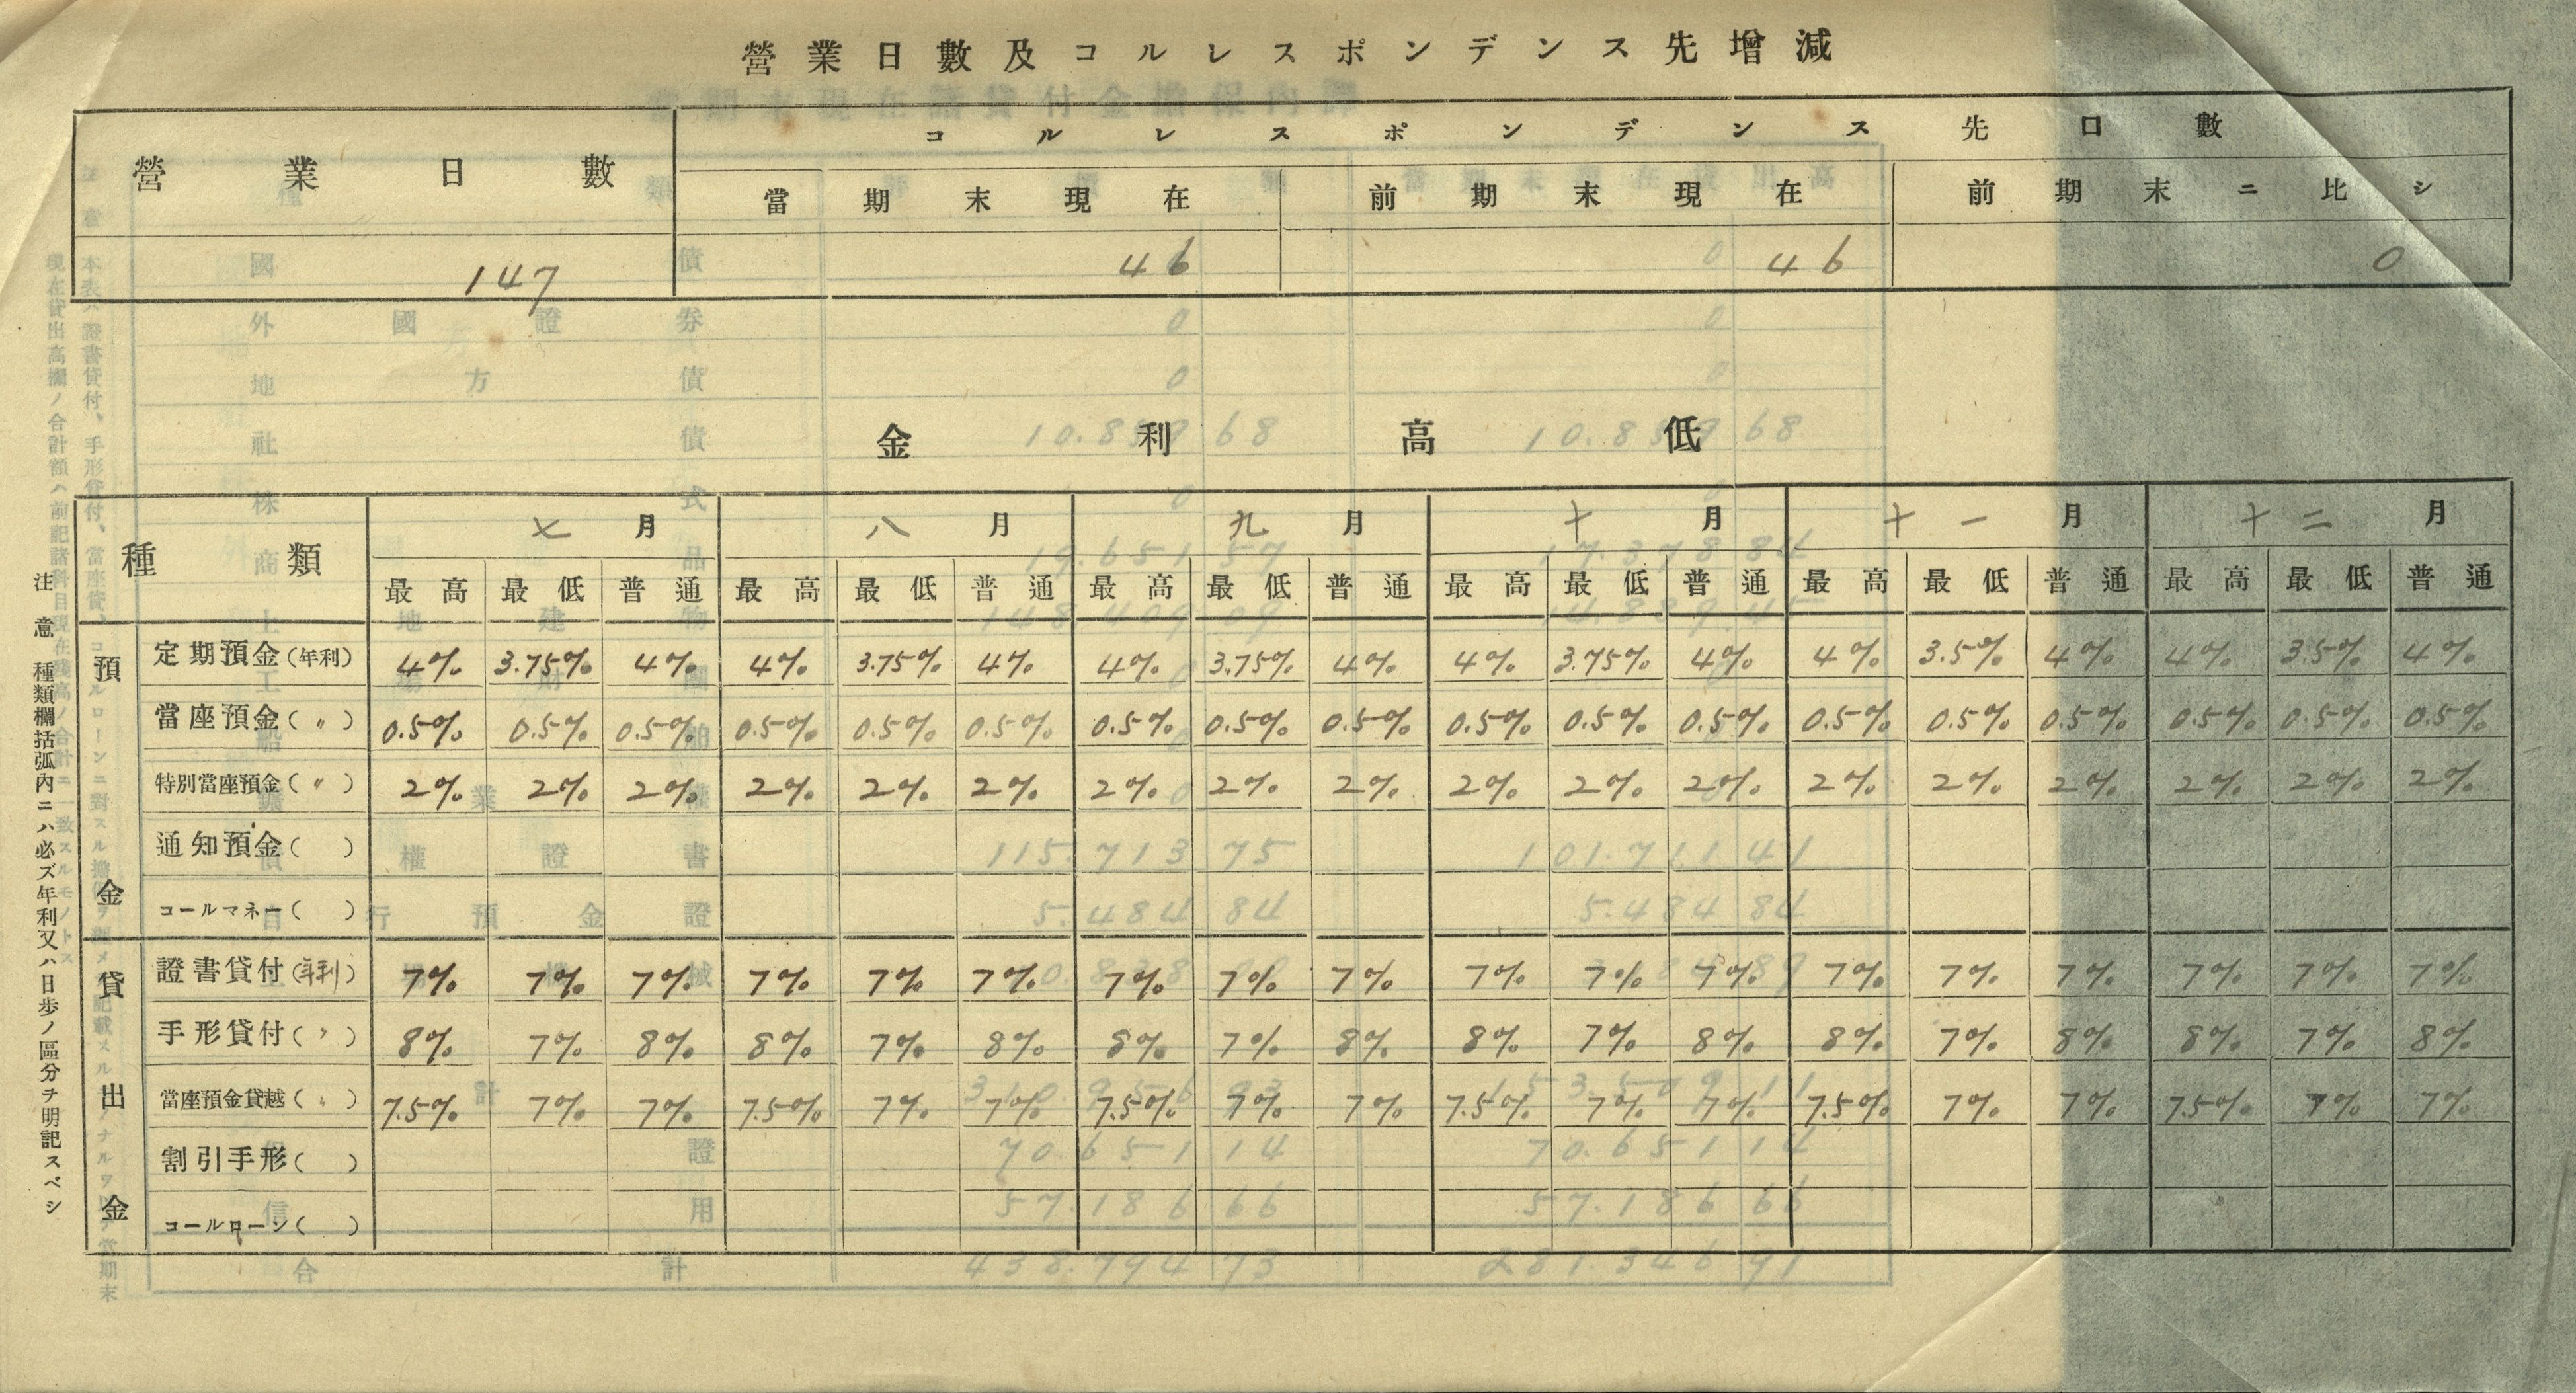 營業日數及コルレスポンデンス先增減
營業日數 コルレスポンデンス先口數
當期末現在 前期末現在 前期末ニ比シ
147 46 46 0
金利高低
種類 七月 八月 九月 十月 十一月 十二月
最高 最低 普通 最高 最低 普通 最高 最低 普通 最高 最低 普通 最高 最低 普通 最高 最低 普通
預金
定期預金(年利) 4% 3.75% 4% 4% 3.75% 4% 4% 3.75% 4% 4% 3.75% 4% 4% 3.5% 4% 4% 3.5% 4%
當座預金(〃) 0.5% 0.5% 0.5% 0.5% 0.5% 0.5% 0.5% 0.5% 0.5% 0.5% 0.5% 0.5% 0.5% 0.5% 0.5% 0.5% 0.5% 0.5%
特別當座預金(〃) 2% 2% 2% 2% 2% 2% 2% 2% 2% 2% 2% 2% 2% 2% 2% 2% 2% 2%
通知預金( )
コールマネー( )
貸出金
證書貸付(年利) 7% 7% 7% 7% 7% 7% 7% 7% 7% 7% 7% 7% 7% 7% 7% 7% 7% 7%
手形貸付(〃) 8% 7% 8% 8% 7% 8% 8% 7% 8% 8% 7% 8% 8% 7% 8% 8% 7% 8%
當座預金貸越(〃) 7.5% 7% 7% 7.5% 7% 7% 7.5% 7% 7% 7.5% 7% 7% 7.5% 7% 7% 7.5% 7% 7%
割引手形( )
コールローン( )
注意 種類欄括弧內ニハ必ズ年利又ハ日步ノ區分ヲ明記スベシ